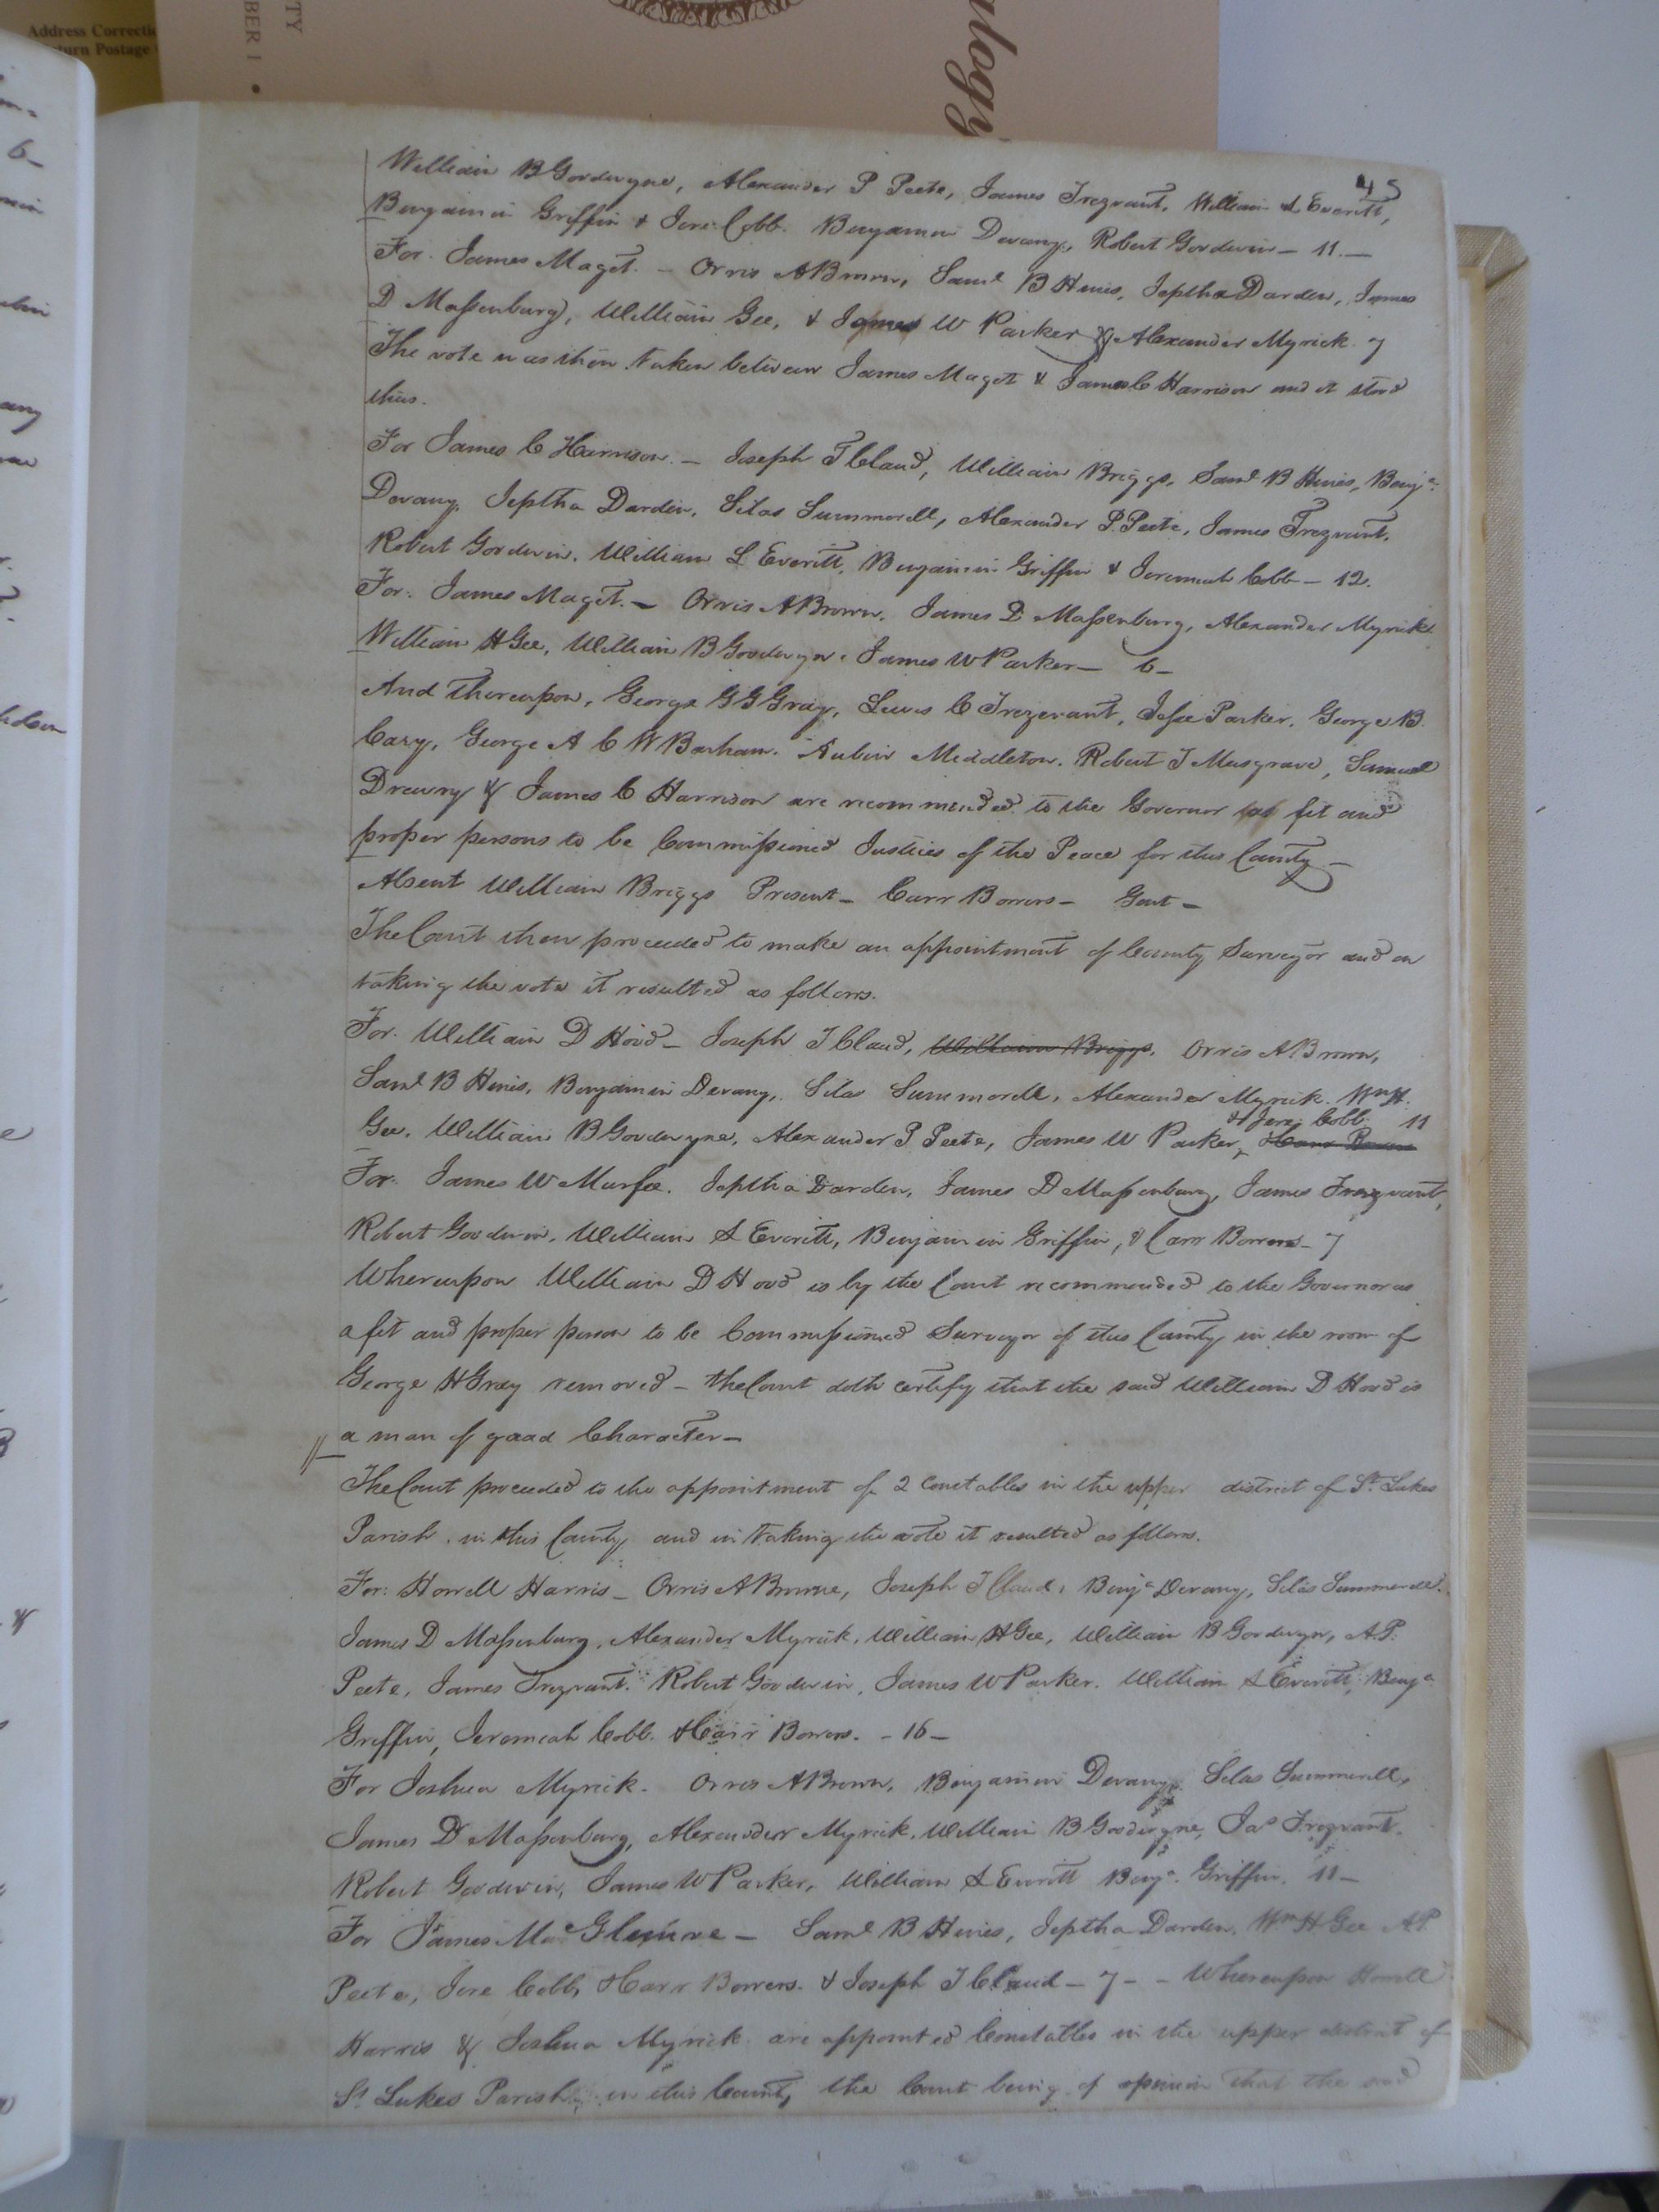 Address Correction
Return Postage
TY
BER 1 •
ulogy
45
William B Goodwyne, Alexander P Peete, James Trezvant, William A. Everitt,
Benjamin Griffin & Jere: Cobb. Benjamin Devany, Robert Goodwin - 11. -
For. James Maget. - Orris A Brown, Saml B Hines, Jeptha Darden, James
D Massenburg, William Gee, & James W Parker & Alexander Myrick. 7
The vote was then taken between James Maget & James C Harrison and it stood
thus.
For James C Harrison. - Joseph T Claud, William Briggs, Saml B Hines, Benja:
Devany, Jeptha Darden, Silas Summerell, Alexander P. Peete, James Trezvant,
Robert Goodwin, William L Everitt, Benjamin Griffin & Jeremiah Cobb - 12.
For: James Maget. - Orris A Brown, James D Massenburg, Alexander Myrick
William H Gee, William B Goodwyn, James W Parker - 6 -
And thereupon, George G G Gray, Lewis C Trezevant, Jesse Parker, George B.
Cary, George A C W Barham, Aubin Middleton, Robert T Musgrave, Samuel
Drewry & James C Harrison are recommended to the Governor as fit and
proper persons to be Commissioned Justices of the Peace for this County -
Absent William Briggs Present - Carr Bowers - Gent -
The Court then proceeded to make an appointment of County Surveyor and on
taking the vote it resulted as follows.
For. William D Hood - Joseph T Claud, William Briggs, Orris A Brown,
Saml B Hines, Benjamin Devany, Silas Summerell, Alexander Myrick, Wm H.
& Jere: Cobb 11
Gee, William B Goodwyne, Alexander P Peete, James W Parker, Carr Bowers
For. James W Murfee. Jeptha Darden, James D Massenburg, James Trezvant,
Robert Goodwin, William A Everitt, Benjamin Griffin, & Carr Bowers - 7
Whereupon William D Hood is by the Court recommended to the Governor as
a fit and proper person to be Commissioned Surveyor of this County in the room of
George H Gray removed - the Court doth certify that the said William D Hood is
a man of good Character -
The Court proceeded to the appointment of 2 Constables in the upper district of St. Lukes
Parish, in this County and in taking the vote it resulted as follows.
For: Howell Harris - Orris A Browne, Joseph T Claud, Benja Devany, Silas Summerell,
James D Massenburg, Alexander Myrick, William H Gee, William B Goodwyn, A.P.
Peete, James Trezvant, Robert Goodwin, James W Parker, William A Everitt, Benja
Griffin, Jeremiah Cobb & Carr Bowers. - 16 -
For Joshua Myrick. Orris A Brown, Benjamin Devany, Silas Summerell,
James D Massenburg, Alexander Myrick, William B Goodwyne, Jas Trezvant,
Robert Goodwin, James W Parker, William A Everitt Benja. Griffin, 11 -
For James - Saml B Hines, Jeptha Darden, Wm H Gee A P.
Peete, Jere Cobb, Carr Bowers. & Joseph T Claud - 7 - - Whereupon Howell
Harris & Joshua Myrick are appointed Constables in the upper district of
St Lukes Parish, in this County the Court being of opinion that the said